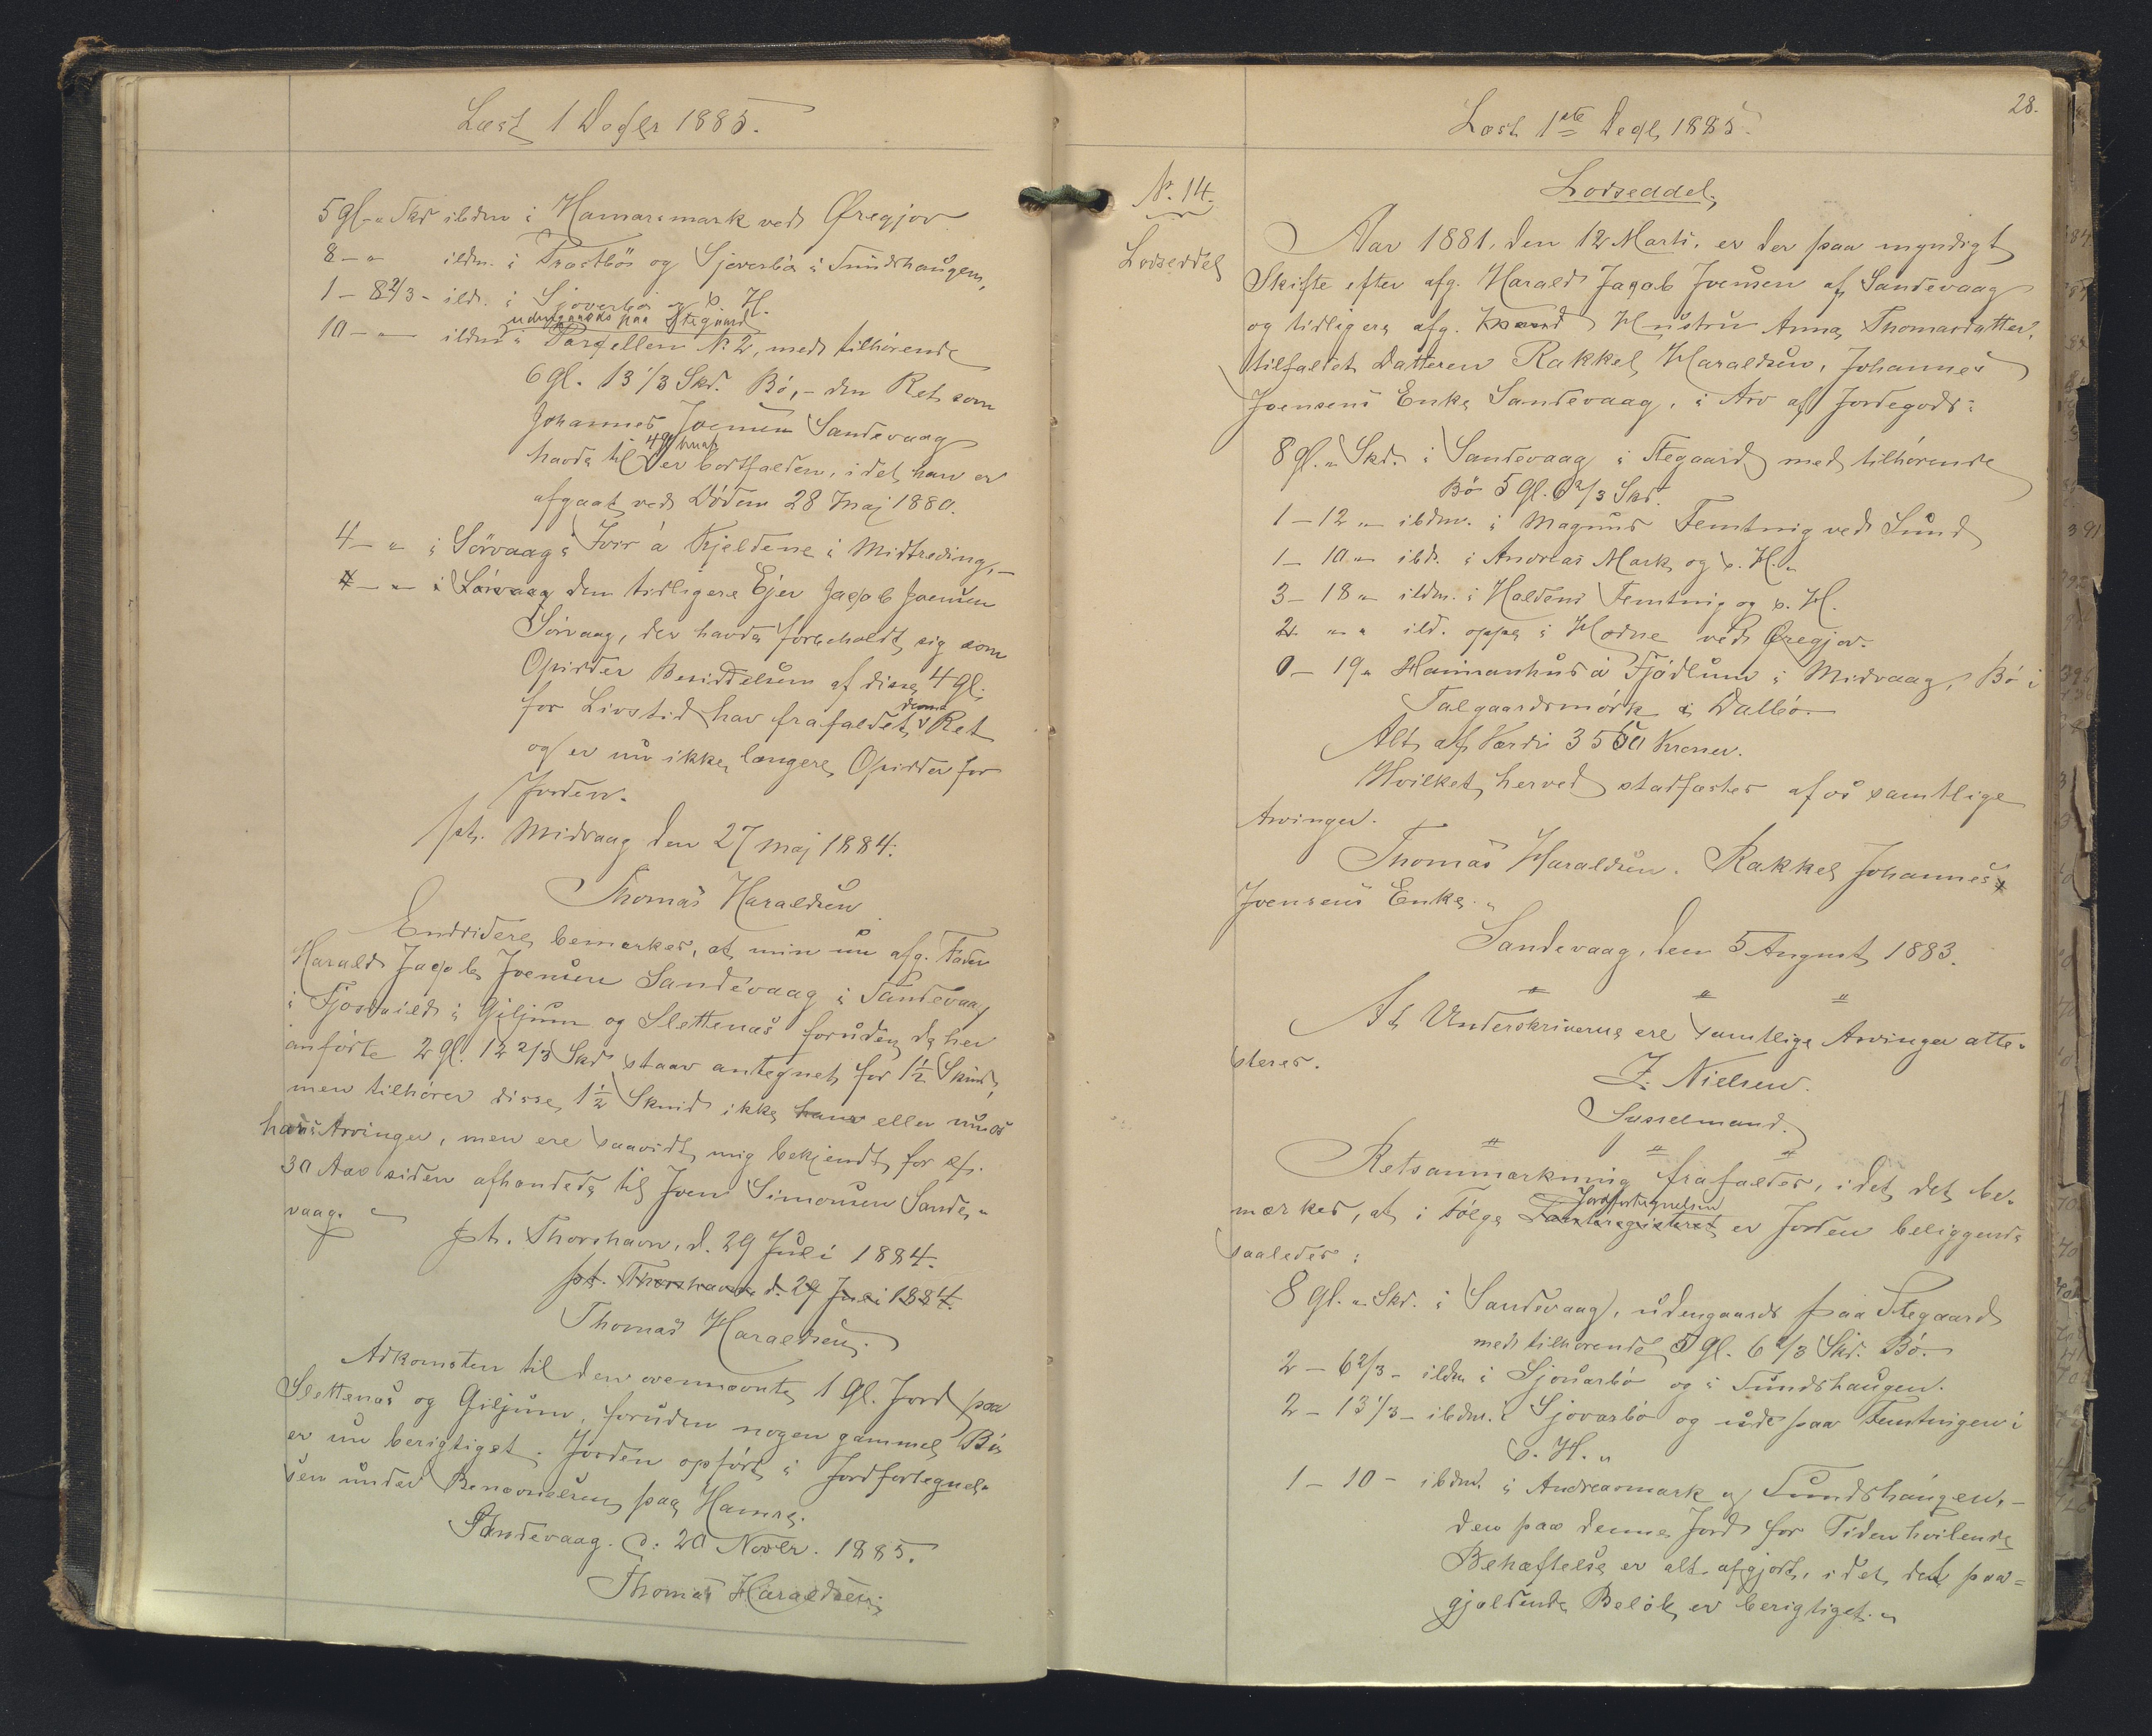 Læst 1 Decbr 1885.
5 gl. " Skd ibdm i Hamarsmark ved Øregjov
8 - " ibdm. i Trøstbø og Sjoverbø i Sundshaugen,
1 - 8 2/3 - ibd. i Sjoverbø og v. H.
udengaards paa Stegaard
10 - " ibdm i Parcellen No 2, med tilhørende
6 gl. 13 1/3 Skd. Bø, - den Ret som
Johannes Joensen Sandevaag
havde til 4 gl heraf er bortfalden, idet han er
afgaaet ved Døden 28 Maj 1880.
4 - " i Sørvaag i Horr á Kjeldene i Midtreding, -
4 - " i Sørvaag den tidligere Ejer Jacob Joensen
Sørvaag, der havde forbeholdt sig som
Opsidder Besiddelsen af disse 4 gl.
for Livstid har frafaldet denne Ret
og er nu ikke længere Opsidder for
Jorden.
pt. Midvaag den 27 Maj 1884.
Thomas Haraldsen
Endvidere bemærkes, at min nu afg. Fader
Harald Jacob Joensen Sandevaag i Sandevaag
i Giljum og Slettenæs foruden de her
anførte 2 gl. 12 2/3 Skd staar antegnet for 1½ Skind,
men tilhører disse 1½ Skind ikke hans eller nu os
hans Arvinger, men ere saavidt mig bekjendt for c.
30 Aar siden afhændede til Joen Simonsen Sande-
vaag.
pt. Thorshavn, d. 29 Juli 1884.
pt. Thorshavn d. 29 Juli 1884.
Thomas Haraldsen.
Adkomsten til den ovennævnte 1 gl. Jord paa
Slettenæs og Giljum, foruden nogen gammel Bø
er nu berigtiget. Jorden opført i Jordfortegnel-
sen under Benævnelsen paa Hamre.
Sandevaag. d. 20 Novbr. 1885.
Thomas Haraldsen.
28.
Læst 1ste Decb, 1885.
No. 14.
Lodseddel
Lodseddel,
Aar 1881, den 12 Marts, er der paa myndigt
Skifte efter afg. Harald Jacob Joensen af Sandevaag
og tidligere afg. Hustru Anna Thomasdatter,
tilfaldet Datteren Rakkel Haraldsen, Johannes
Joensens Enke Sandevaag, i Arv af Jordegods:
8 gl. " Skd. i Sandevaag i Stegaard med tilhørende
Bø 5 gl. 6 2/3 Skd.
1 - 12 " ibdm. i Magnus Femtnig ved Sund
1 - 10 " ibd. i Andreas Mark og v. H. "
3 - 18 " ibdm. i Haldens Femtnig og v. H.
2 " " ibd. oppe i Hodne ved Øregjov.
0 - 19 " Hannanhus á Fjødlum i Midvaag, Bø i
Talgaardsmørk i Dalbø.
Alt af Værdi 3550 Kroner.
Hvilket herved stadfæstes af os samtlige
Arvinger.
Thomas Haraldsen. Rakkel Johannes
Joensens Enke. "
Sandevaag, den 5 August 1883.
" " "
At Underskriverne ere samtlige Arvinger atte-
steres.
J. Nielsen.
Sysselmand.
" " "
Retsanmærkning frafaldes, idet det be-
mærkes, at i Følge Jordfortegnelsen er Jorden beliggende
saaledes:
8 gl. " Skd. i Sandevaag, udengaards paa Stegaard
med tilhørende 5 gl. 6 2/3 Skd. Bø.
2 - 6 2/3 - ibdm i Sjovarbø og i Sundshaugen.
2 - 13 1/3 - ibdm. i Sjovarbø og ude paa Femtnigen i
v. H. "
1 - 10 - ibdm. i Andreasmark og Sundshaugen, -
den paa denne Jord for Tiden hvilende
Behæftelse er alt afgjort, idet det paa-
gjældende Beløb er berigtiget. "